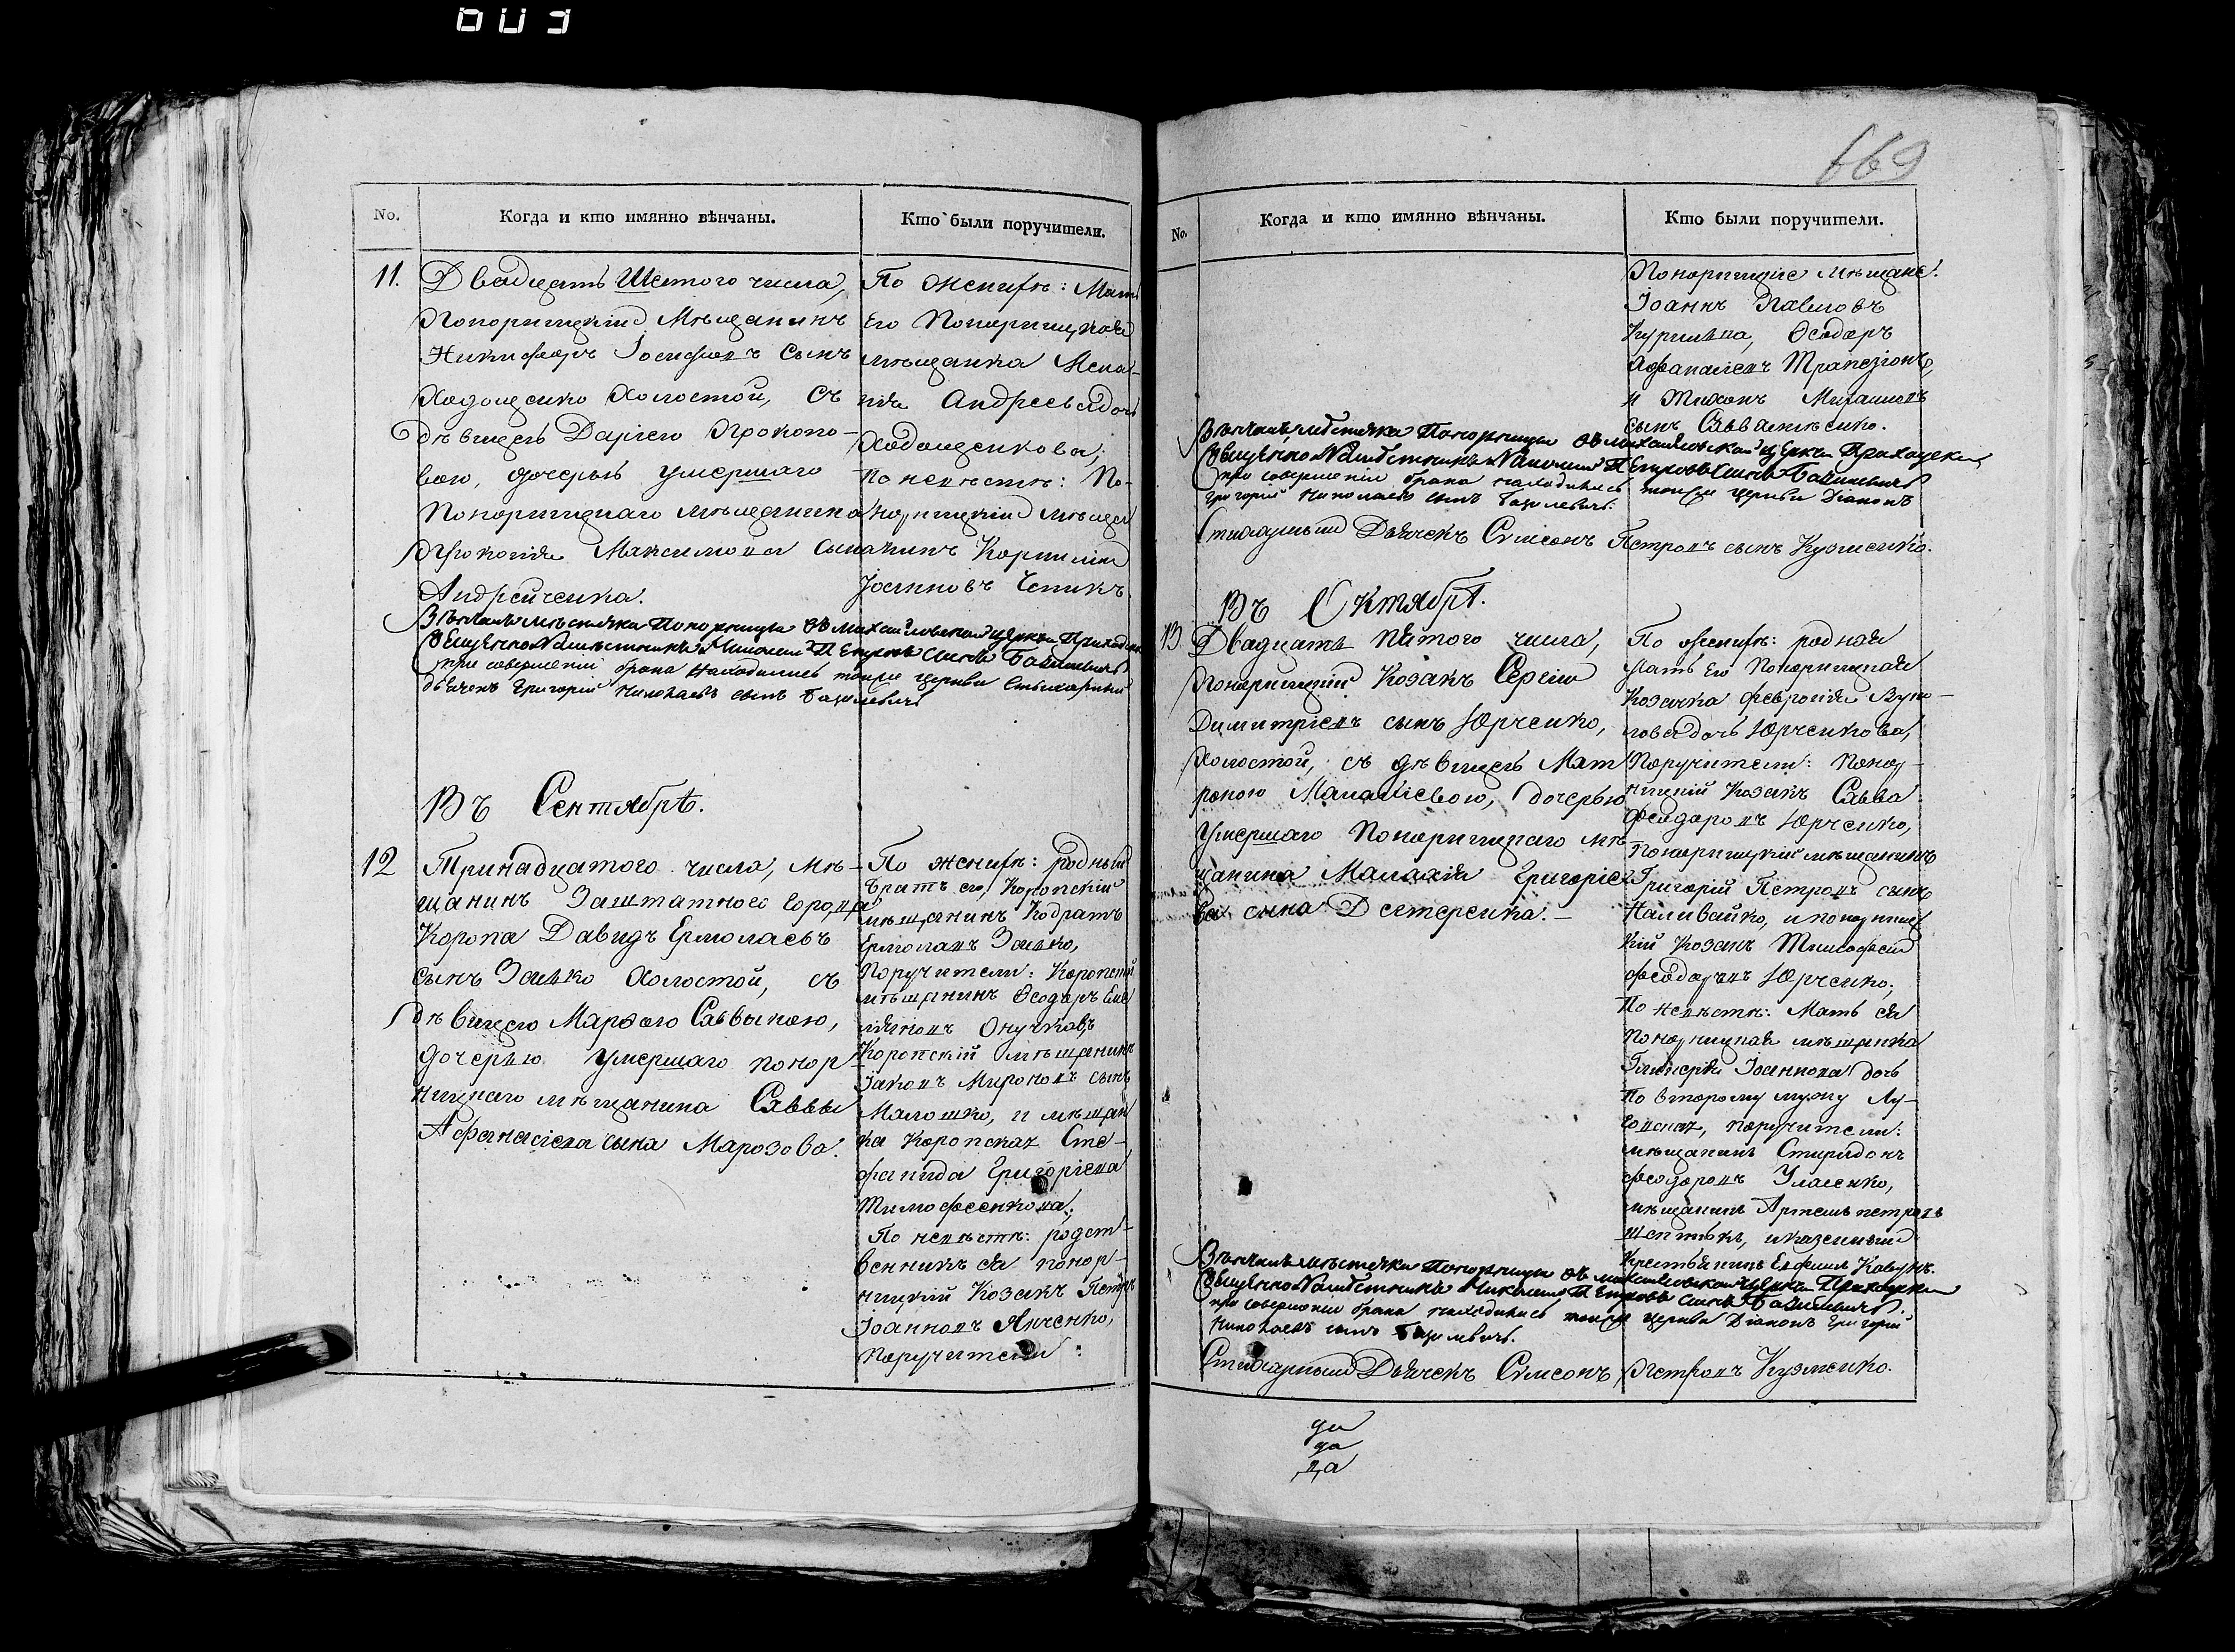 669
No.
Когда и кто имянно вѣнчаны.
Кто были поручители.
11.
Двадцать Шестого числа,
Понорницкій Мѣщанинъ
Никифоръ Іосифовъ сынъ
Ходощенко холостой, съ
дѣвицею Даріею Прокопо-
вою, дочерью умершаго
Понорницкаго мѣщанина
Прокопія Максимова сына
Андрейченка.
По женихѣ: Мать
Его Понорницкая
мѣщанка
Андреева дочь
Ходощенкова;
По невѣстѣ: По-
норницкій мѣща
нинъ Корнилій
Іоанновъ Чепикъ.
Вѣнчалъ мѣстечка Понорницы Михайловской Церкви
Священно Намѣстникъ Николай Петровъ Сынъ Базилевичъ
при совершеніи брака находились тоиже церкви Стихарный
дьячекъ Григорій Николаевъ сынъ Базилевичъ
Въ Сентябрѣ.
12
Тринадцатого числа, мѣ-
щанинъ Заштатного города
Коропа Давидъ Ермолаевъ
сынъ Заико холостой, съ
дѣвицею Марѳою Саввиною,
дочерью умершаго понор-
ницкаго мѣщанина Саввы
Афанасіева сына Марозова.
По женихѣ: родный
братъ его, Коропскій
мѣщанинъ Кодратъ
Ермолаевъ Заико,
Поручители: Коропскій
мѣщанинъ Ѳеодоръ Еме
ліяновъ Онучковъ
Коропскій мѣщанинъ
Іаковъ Мироновъ сынъ
Малошко, и мѣщан
ка Коропская Сте-
фанида Григоріева
Тимофеенкова;
По невѣстѣ: родст-
венникъ ея понор-
ницкій Козакъ Петръ
Іоанновъ Янченко,
Поручители:
No.
Когда и кто имянно вѣнчаны.
Кто были поручители.
Понорницкіе мѣщане:
Іоаннъ Павловъ
Ѳеодоръ
Афанасіевъ Трапезіонъ,
и Тихонъ
сынъ
Вѣнчалъ мѣстечка Понорницы Михайловской Церкви
Священно Намѣстникъ Николай Петровъ Сынъ Базилевичъ
при совершеніи брака находились тоиже церкви Діаконъ
Григорій Николаевъ сынъ Базилевичъ.
Стихарный Дьячекъ Симеонъ Петровъ сынъ Кузменко.
Въ Октябрѣ.
13
Двадцать пятого числа,
Понорницкій Козакъ Сергій
Димитріевъ сынъ Юрченко,
холостой, съ дѣвицею Мат
роною Малахіевою, дочерью
Умершаго Понорницкаго мѣ-
щанина Малахія Григоріе-
ва сына Дегтеренка.
По женихѣ: родная
Мать Его Понорницкая
Козачка Февронія
дочь Юрченкова,
Поручители: Понор-
ницкій Козакъ Савва
Феодоровъ Юрченко,
Понорницкій мѣщанинъ
Григорій Петровъ сынъ
Наливайко, и понорниц
кій Козакъ Тимофей
Феодоровъ Юрченко;
По невѣстѣ: Мать ея
Понорницкая мѣщанка
Гликерія Іоаннова дочь
По второму мужу
поручители:
мѣщанинъ Спиридонъ
Феодоровъ Уласенко,
мѣщанинъ Артемъ петровъ
и казенный
крестьянинъ Ефимъ Кавунъ.
Вѣнчалъ мѣстечка Понорницы Михайловской Церкви
Священно Намѣстникъ Николай Петровъ Сынъ Базилевичъ.
при совершеніи брака находились тоиже церкви Діаконъ Григорій
Николаевъ сынъ Базилевичъ.
Стихарный Дьячекъ Симеонъ Петровъ Кузменко.